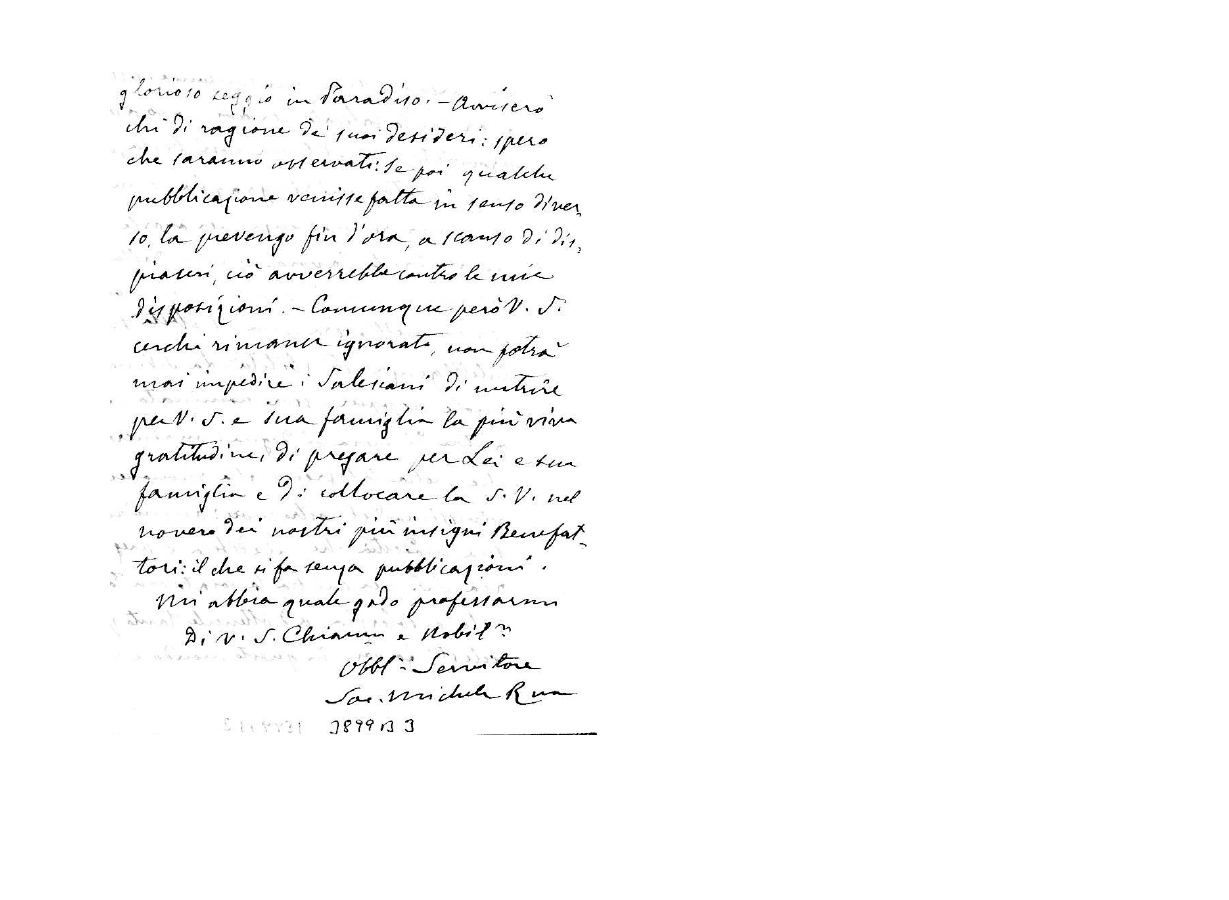 glorioso seggio in Paradiso. – Avviserò
chi di ragione dei suoi desideri: spero
che saranno osservati: Se poi qualche
pubblicazione venisse fatta in senso diver-
so, la prevengo fin d'ora, a scanso di dis-
piaceri, ciò avverrebbe contro le mie
disposizioni. – Comunque però V. S.
cerchi rimaner ignorato, non potrà
mai impedire i Salesiani di nutrire
per V. S. e sua famiglia la più viva
gratitudine, di pregare per Lei e sua
famiglia e di collocare la S. V. nel
novero dei nostri più insigni Benefat-
tori: il che si fa senza pubblicazioni.
Mi abbia quale godo professarmi
Di V. S. Chiarma e Nobilma
Obblmo Servitore
Sac. Michele Rua
3899 B 3